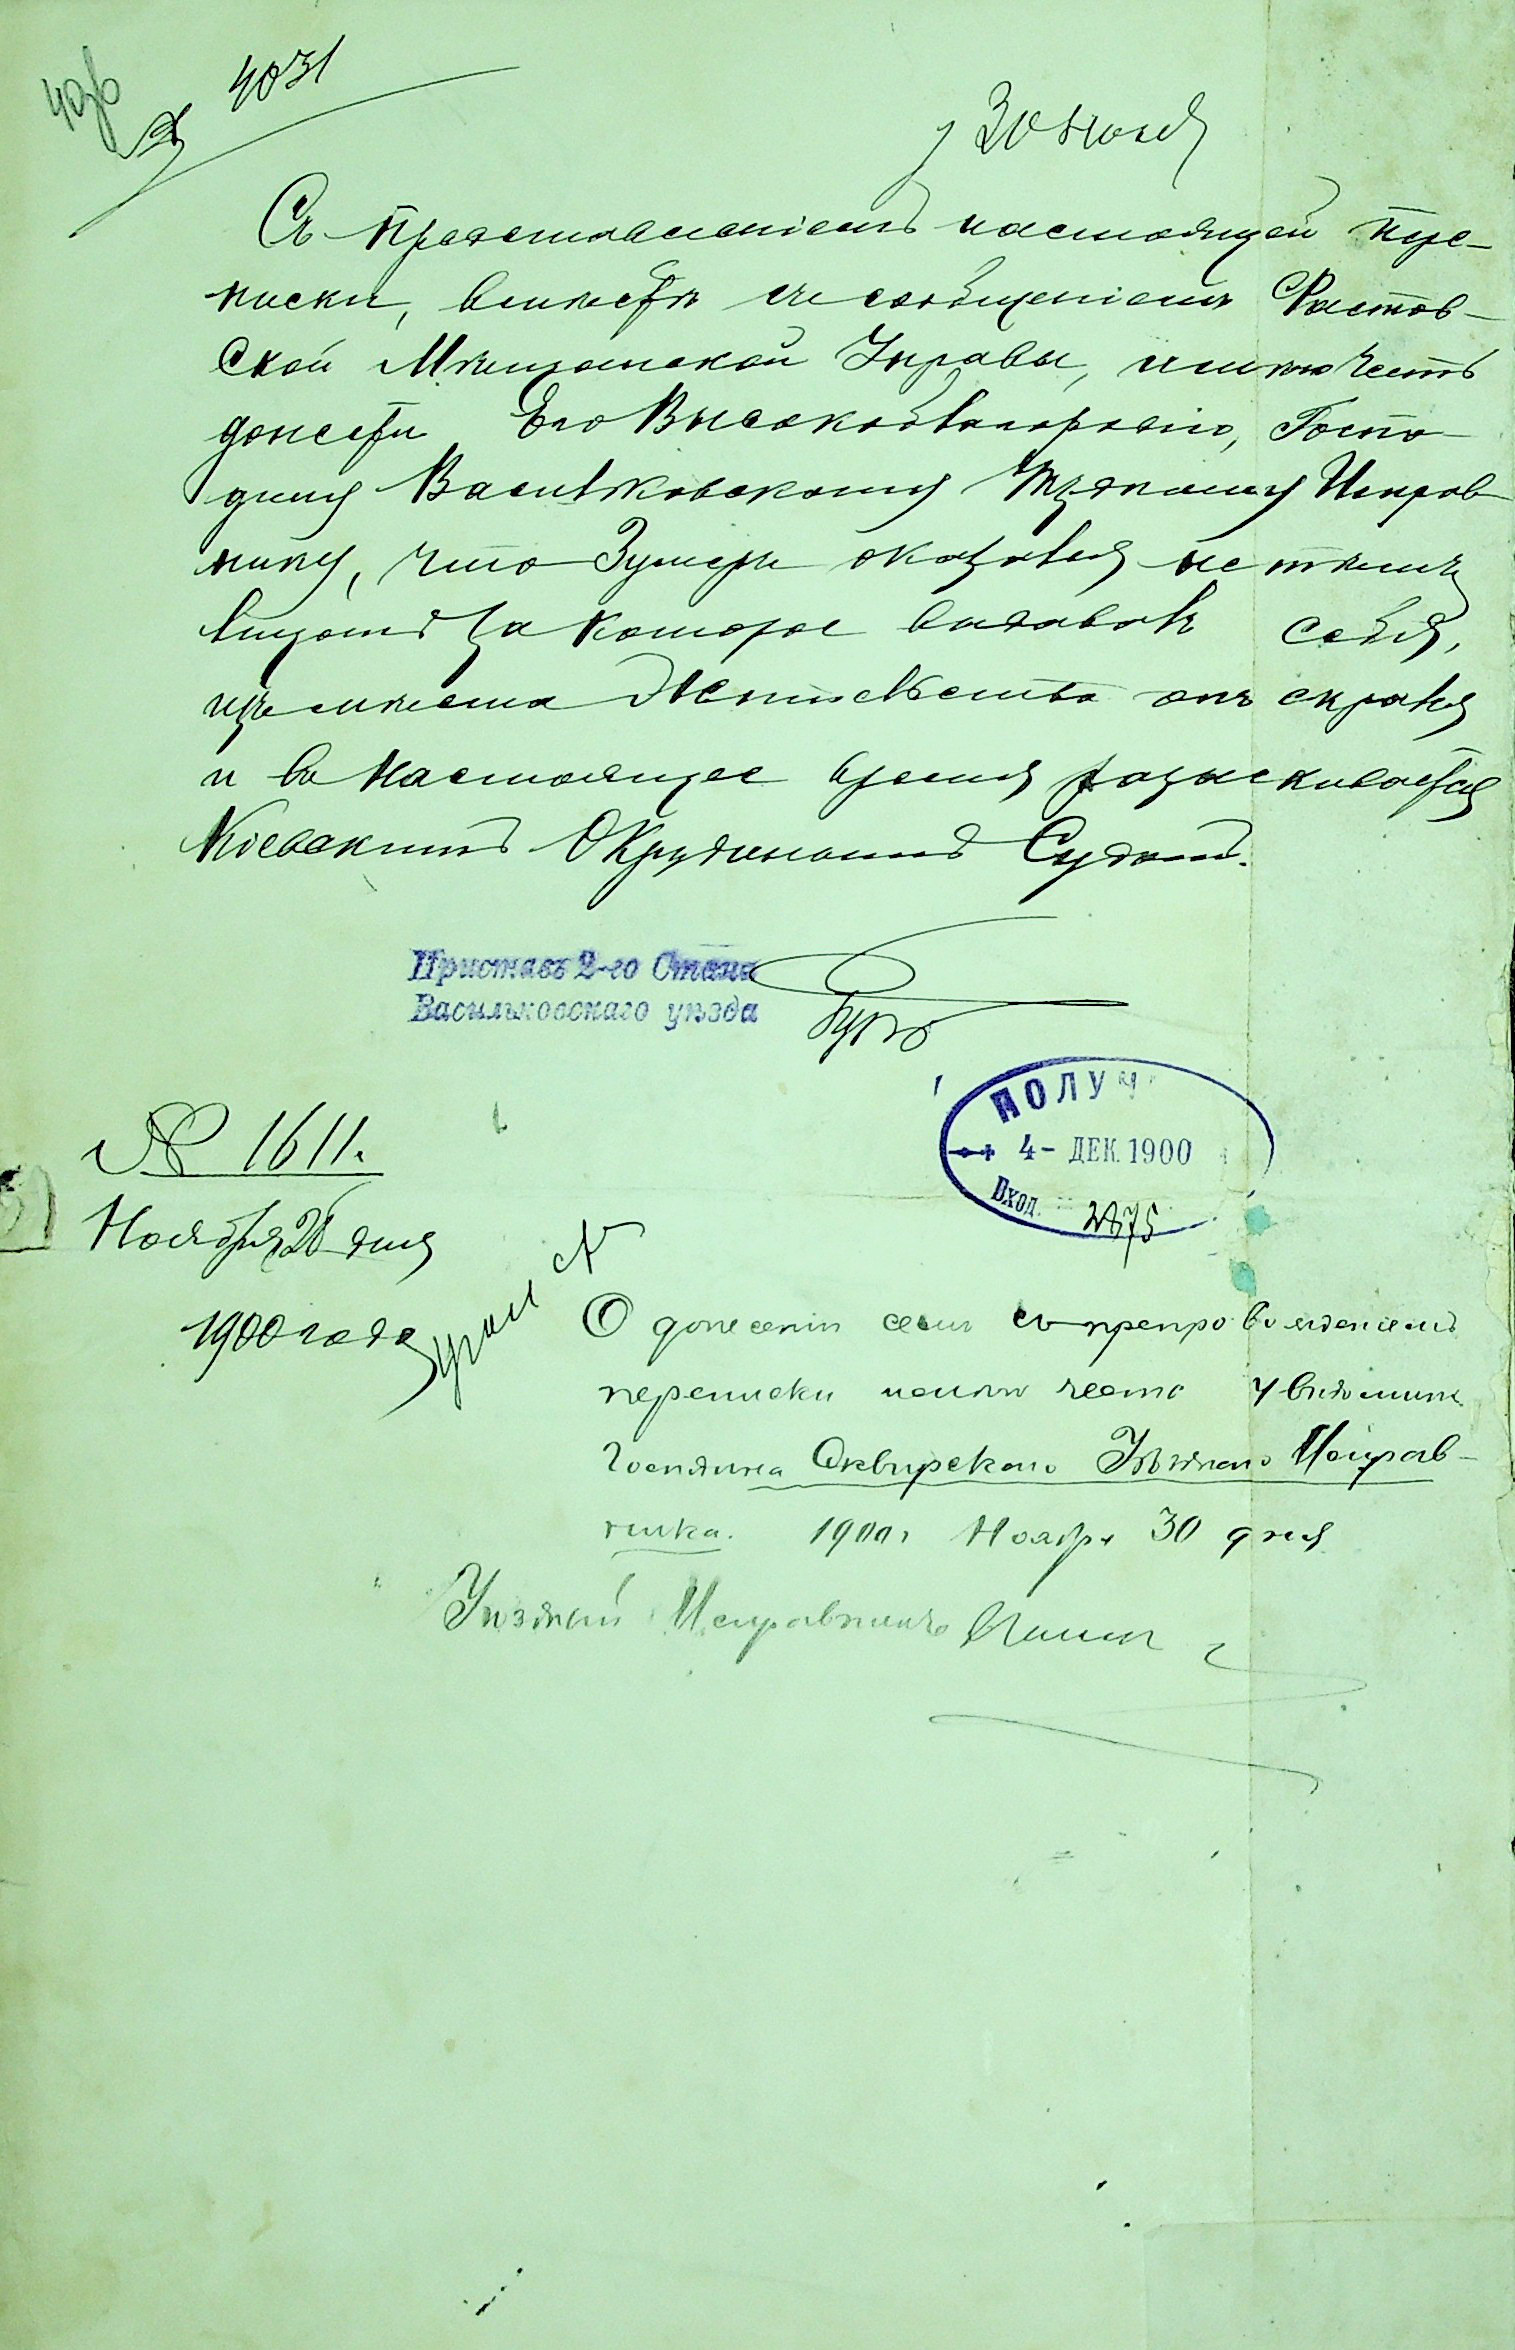 4031
30 Нояб
Съ представленіемъ настоящей пере-
писки, вместѣ съ сообщеніемъ Фастов-
ской Мѣщанской Управы, имѣю честь
донести Его Высокоблагородію, Госпо-
дину Васильковскому Уѣздному Исправ-
нику, что Зумеръ оказался не тѣмъ
лицомъ за которое выдавалъ себя,
изъ мѣста жительства онъ скрылся
и въ настоящее время разыскивается
Кіевскимъ Окружнымъ Судомъ.
Приставъ 2-го Стана
Васильковскаго уѣзда
ПОЛУЧ
4 - ДЕК. 1900
Вход. 2875
№ 1611.
Ноября 26 дня
1900 года
О донесеніи семъ съ препровожденіемъ
переписки имѣю честь увѣдомить
Господина Сквирскаго Уѣзднаго Исправ-
ника. 1900 г Ноября 30 дня
Уѣздный Исправникъ